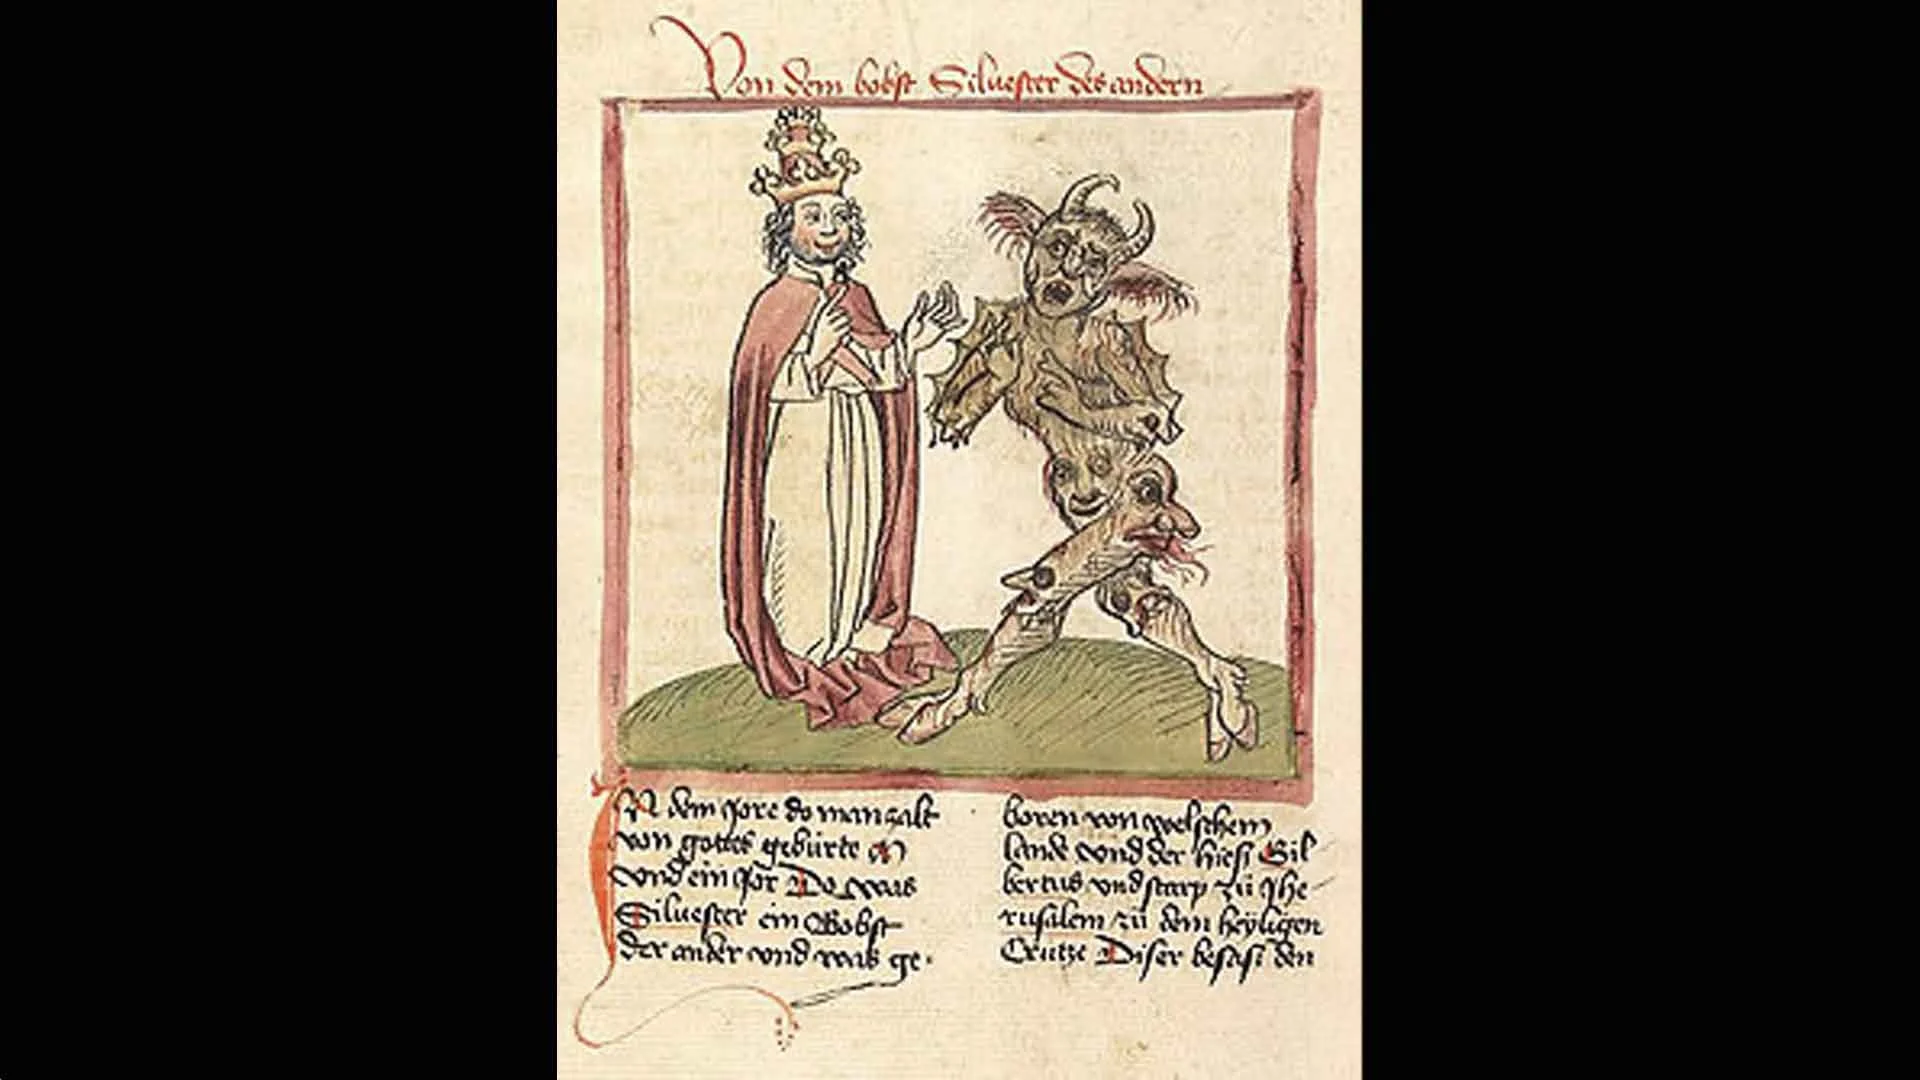 Von dem bobst Siluester des andern
IN dem jore do man zalt
von gottes gebürte M
vnd ein jor Do was
Siluester ein Bobst
der ander vnd was ge-
boren von welschem
lande vnd der hiesz Gil-
bertus vnd starp zü Jhe-
rusalem zü dem heyligen
Crütze Diser besasz den